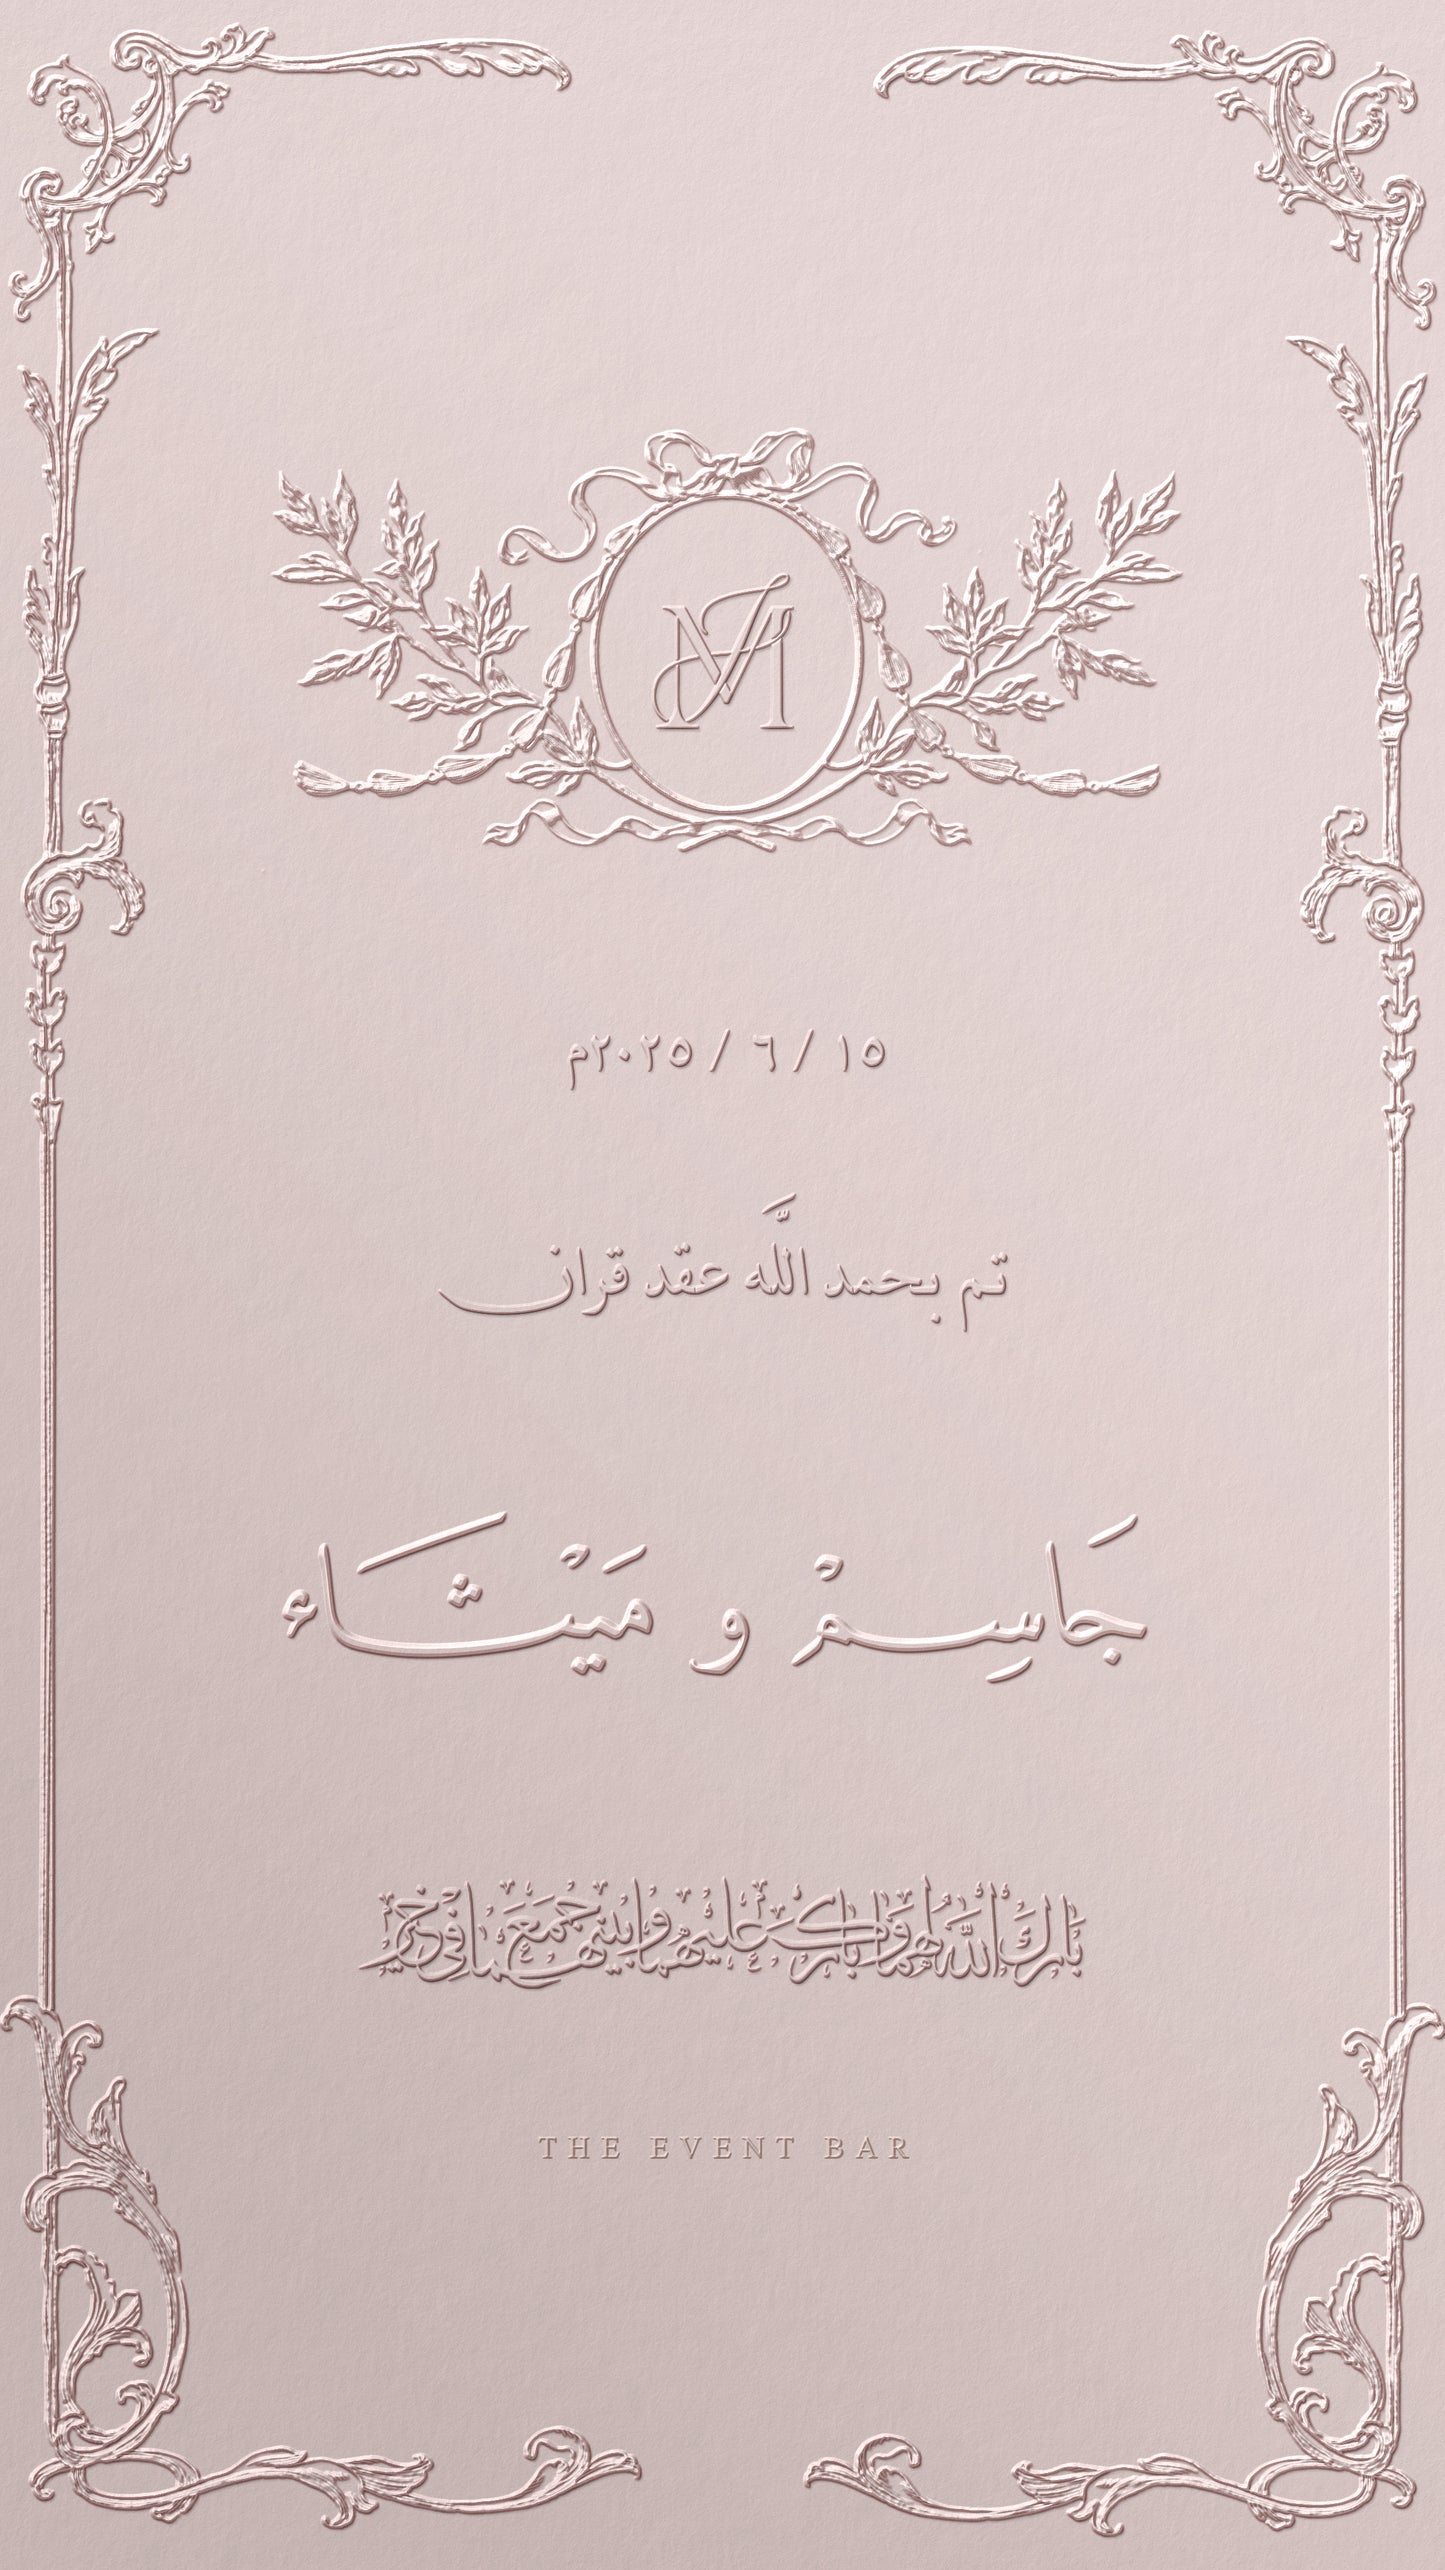 JM
١٥ / ٦ / ٢٠٢٥م
تم بحمد اللَّه عقد قران
جَاسِمْ و مَيْثَاء
بارك الله لهما وبارك عليهما وجمع بينهما في خير
THE EVENT BAR